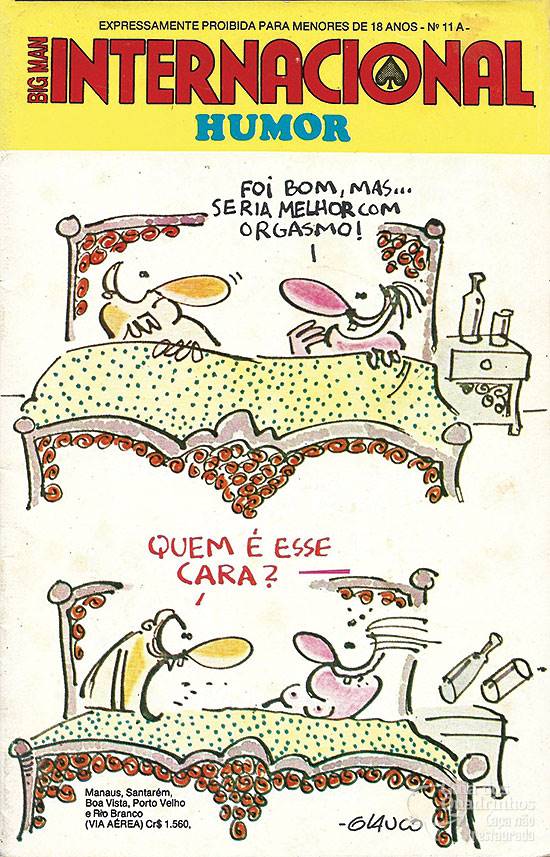 EXPRESSAMENTE PROIBIDA PARA MENORES DE 18 ANOS - Nº 11 A -
BIG MAN
INTERNACIONAL
HUMOR
FOI BOM, MAS...
SERIA MELHOR COM
ORGASMO!
QUEM É ESSE
CARA?
Manaus, Santarém,
Boa Vista, Porto Velho
e Rio Branco
(VIA AÉREA) Cr$ 1.560,
-GLAUCO
Guia dos
Quadrinhos
Capa não
restaurada